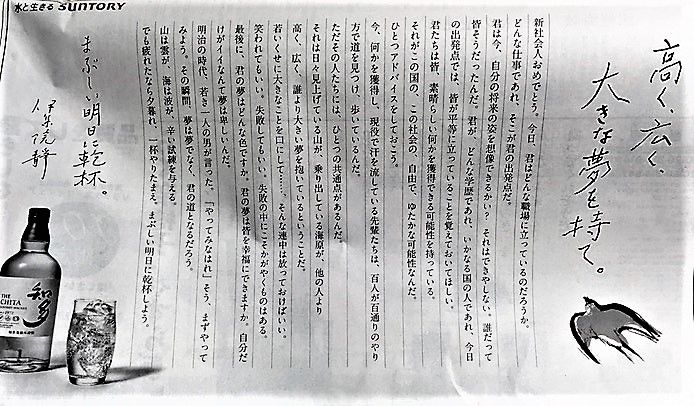 水と生きる SUNTORY
高く、広く、
大きな夢を持て。
新社会人おめでとう。今日、君はどんな職場に立っているのだろうか。
どんな仕事であれ、そこが君の出発点だ。
君は今、自分の将来の姿を想像できるかい？それはできやしない。誰だって
皆そうだったんだ。君が、どんな学歴であれ、いかなる国の人であれ、今日
の出発点では、皆が平等に立っていることを覚えておいてほしい。
君たちは皆、素晴らしい何かを獲得できる可能性を持っている。
それがこの国の、この社会の、自由で、ゆたかな可能性なんだ。
ひとつアドバイスをしておこう。
今、何かを獲得し、現役で汗を流している先輩たちは、百人が百通りのやり
方で道を見つけ、歩いているんだ。
ただその人たちには、ひとつの共通点があるんだ。
それは日々見上げている山が、乗り出している海原が、他の人より
高く、広く、誰より大きい夢を抱いているということだ。
若いくせに大きなことを口にして…、そんな連中は放っておけばいい。
笑われてもいい。失敗してもいい。失敗の中にこそかがやくものはある。
最後に、君の夢はどんな色ですか。君の夢は皆を幸福にできますか。自分だ
けがイイなんて夢は卑しいんだ。
明治の時代、若き一人の男が言った。「やってみなはれ」そう、まずやって
みよう。その瞬間、夢は夢でなく、君の道となるだろう。
山は雲が、海は波が、辛い試練を与える。
でも疲れたなら夕暮れ、一杯やりたまえ。まぶしい明日に乾杯しよう。
まぶしい明日に乾杯。
伊集院静
THE
CHITA
知多